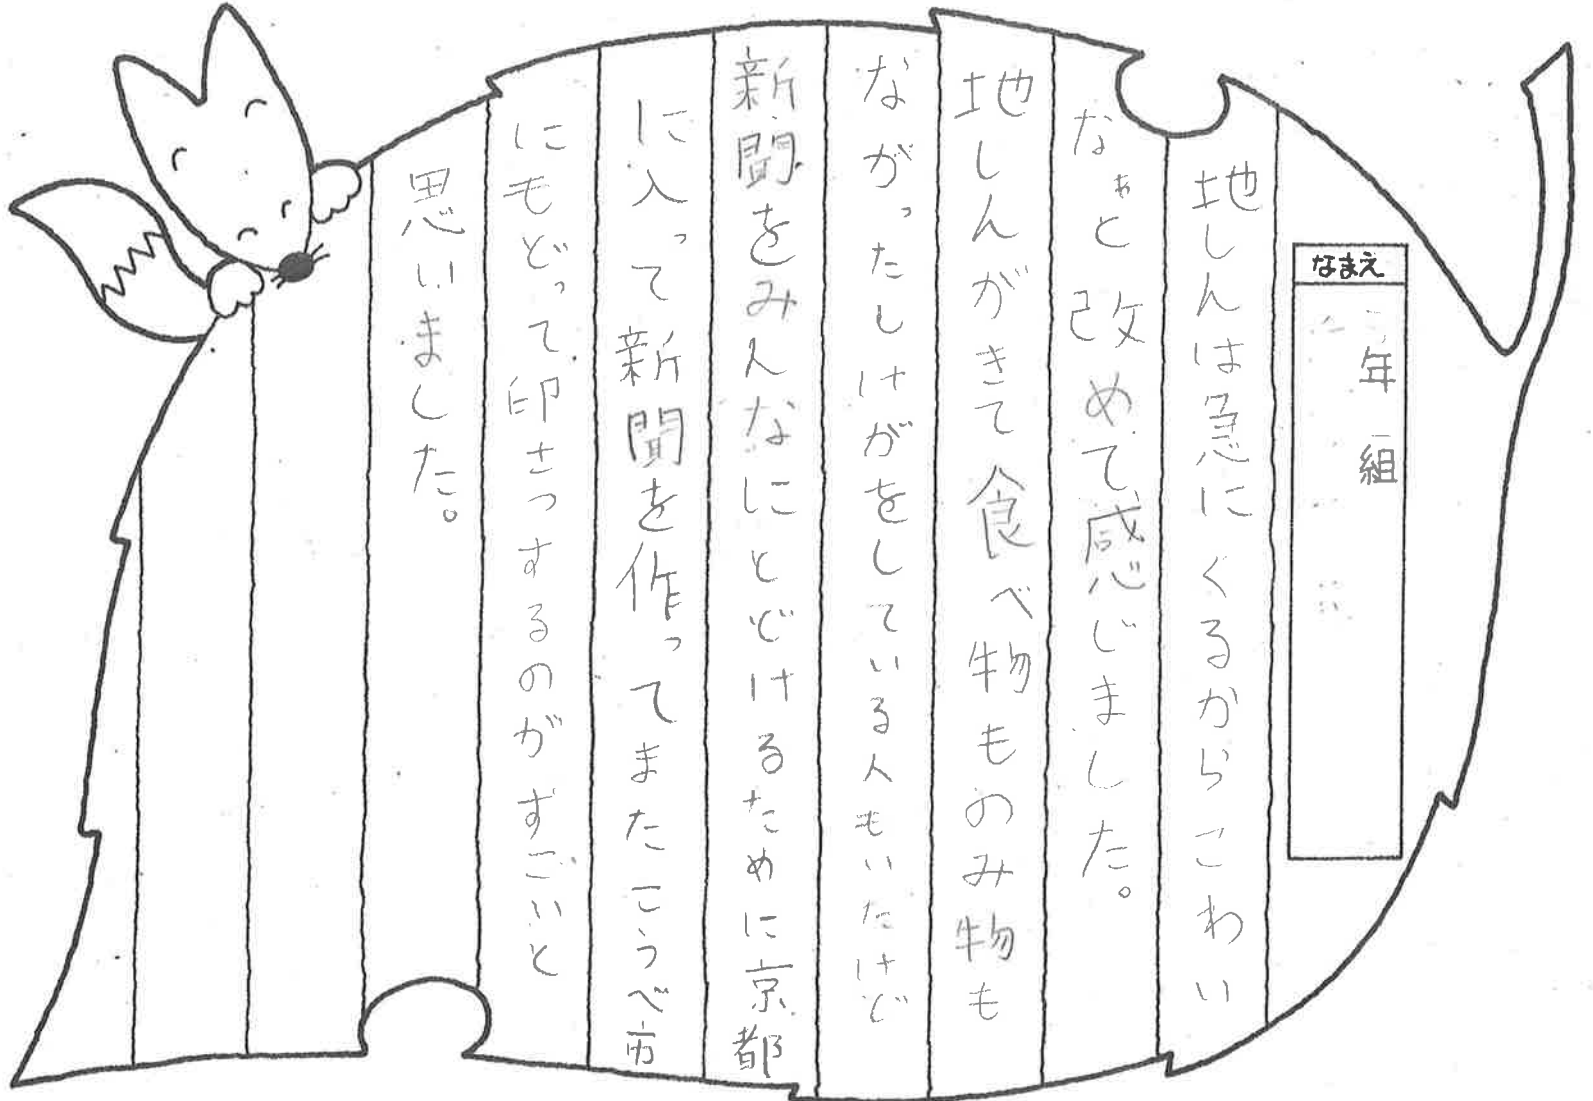 なまえ
年 組
地しんは急にくるからこわい
なぁと改めて感じました。
地しんがきて食べ物ものみ物も
ながったしけがをしている人もいたけど
新聞をみんなにとどけるために京都
に入って新聞を作ってまたこうべ市
にもどって印さつするのがすごいと
思いました。